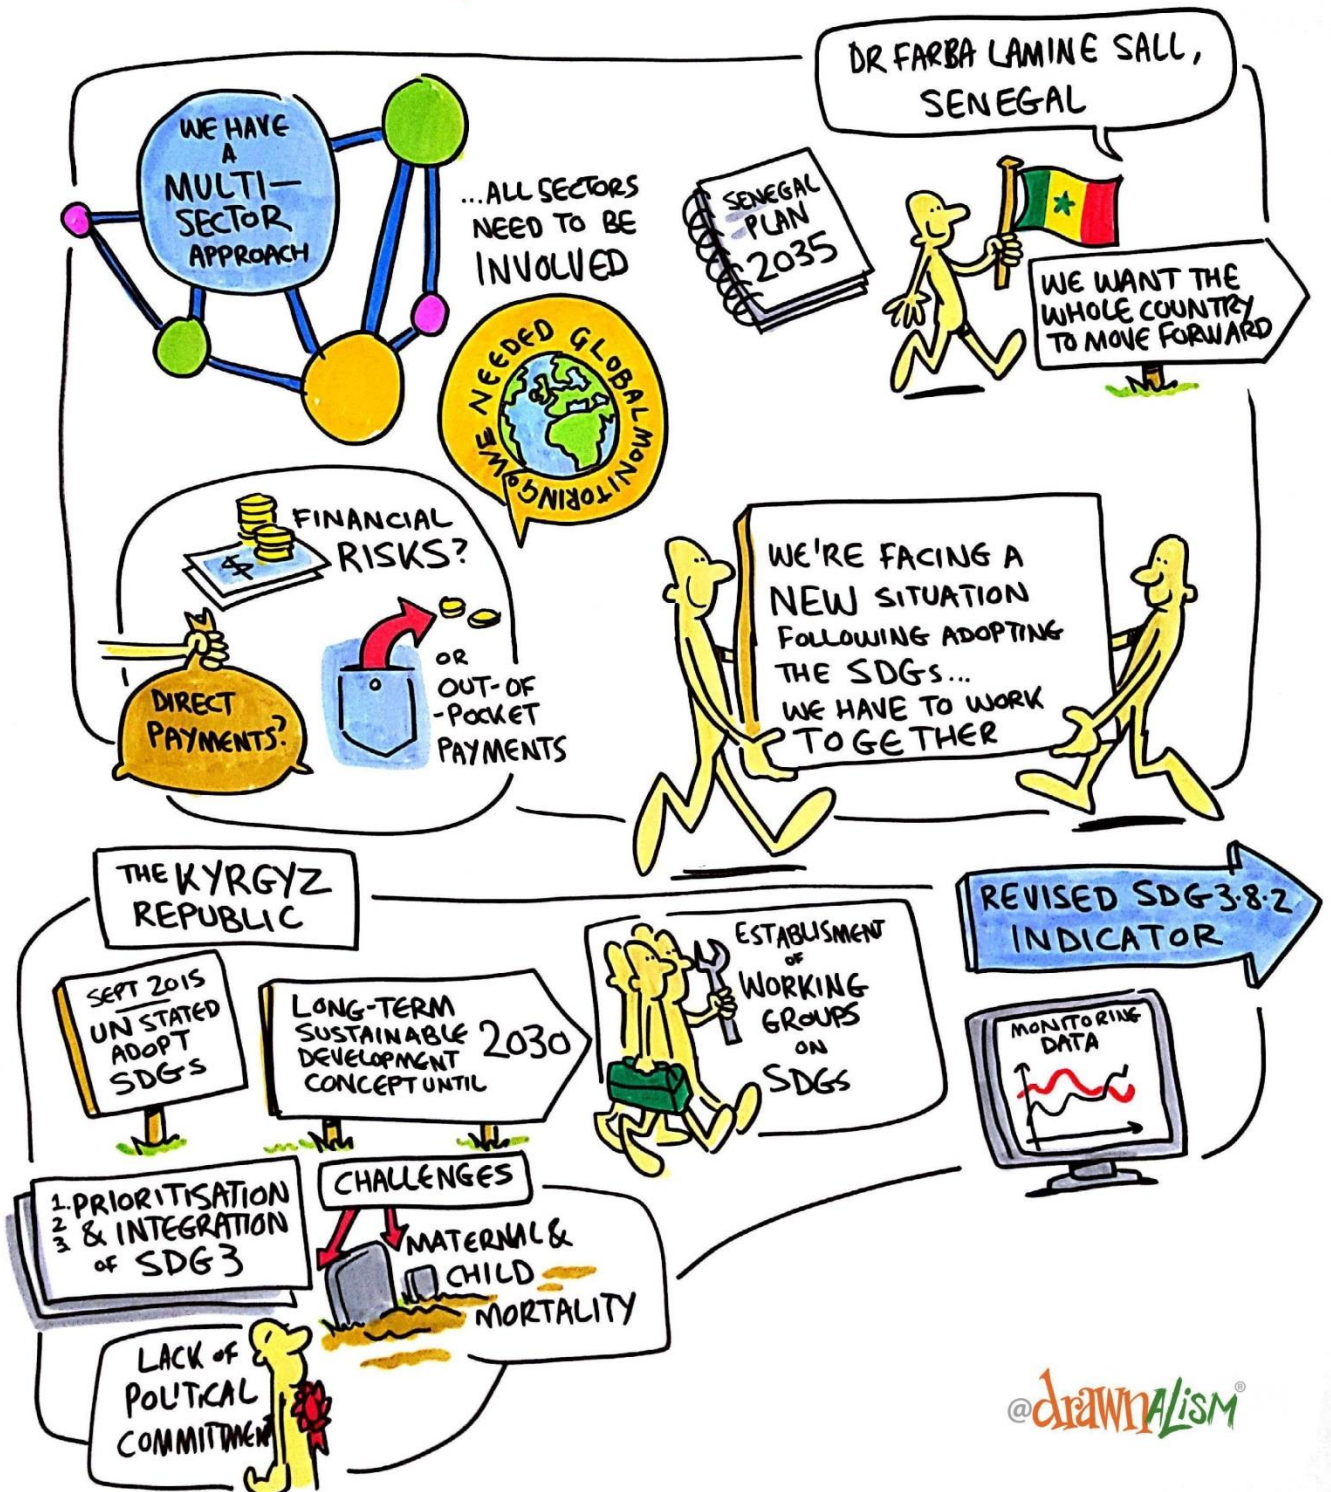 DR FARBA LAMINE SALL,
SENEGAL
WE HAVE
A
MULTI-
SECTOR
APPROACH
...ALL SECTORS
NEED TO BE
INVOLVED
SENEGAL
PLAN
2035
WE WANT THE
WHOLE COUNTRY
TO MOVE FORWARD
WE NEEDED GLOBAL MONITORING
FINANCIAL
RISKS?
$
DIRECT
PAYMENTS?
OR
OUT-OF
-POCKET
PAYMENTS
WE'RE FACING A
NEW SITUATION
FOLLOWING ADOPTING
THE SDGs...
WE HAVE TO WORK
TOGETHER
THE KYRGYZ
REPUBLIC
SEPT 2015
UN STATED
ADOPT
SDGS
LONG-TERM
SUSTAINABLE
DEVELOPMENT
CONCEPT UNTIL
2030
ESTABLISMENT
OF
WORKING
GROUPS
ON
SDGS
REVISED SDG 3.8.2
INDICATOR
MONITORING
DATA
1. PRIORITISATION
2 & INTEGRATION
3 OF SDG 3
CHALLENGES
MATERNAL &
CHILD
MORTALITY
LACK OF
POLITICAL
COMMITTMENT
@drawnalism®